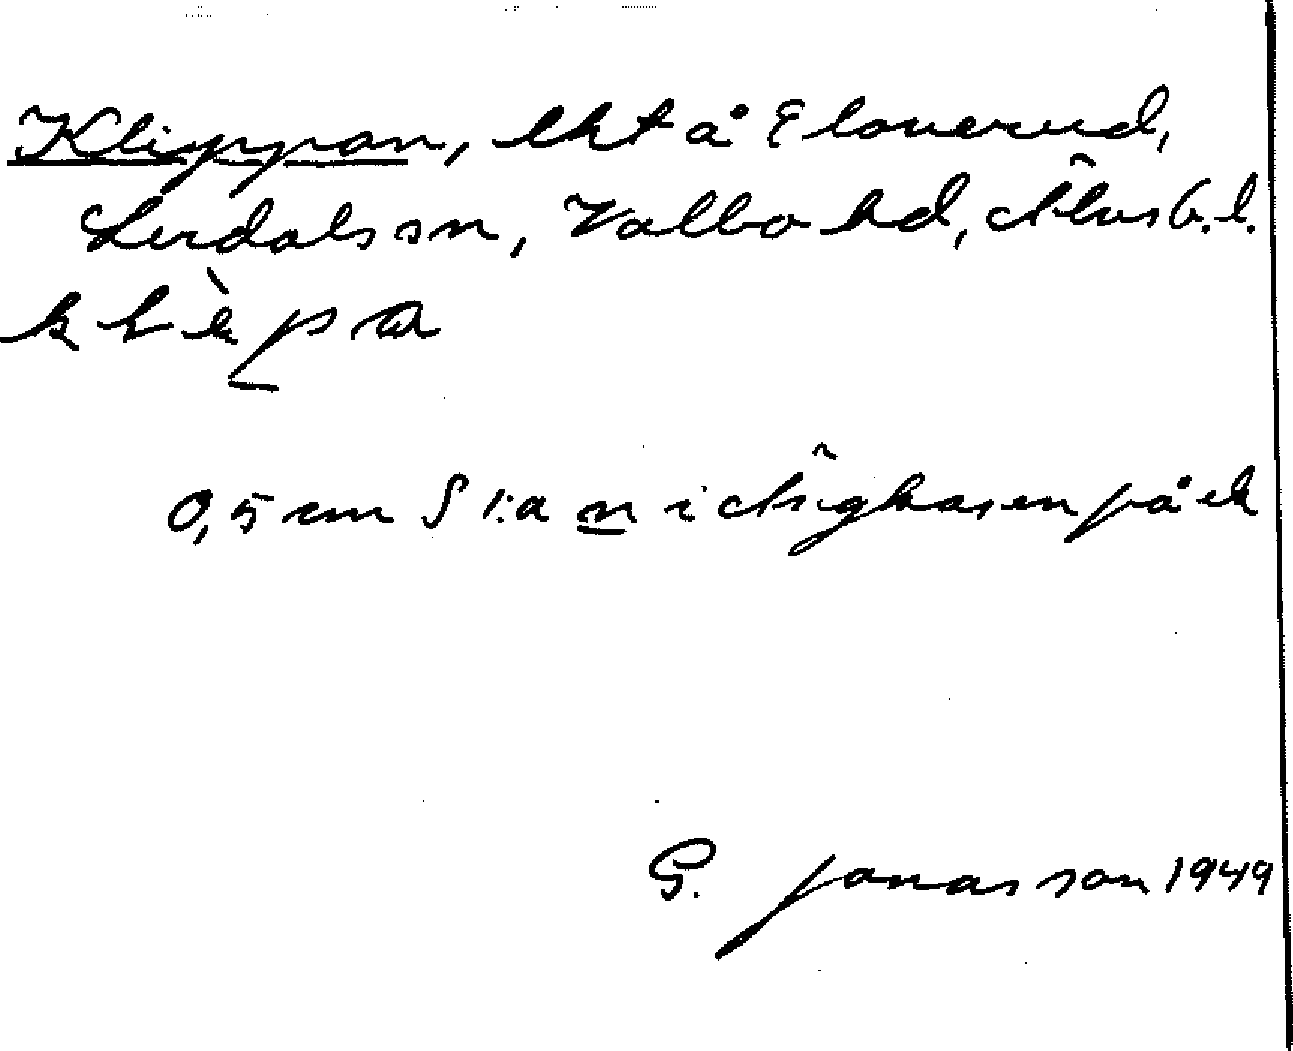 Klippan, lht å Elouerud,
Lerdals sn, Valbo hd, Älvsb. l.
klèpa
0,5 cm S 1:a n i Högåsen på ek
G. Jonasson 1949